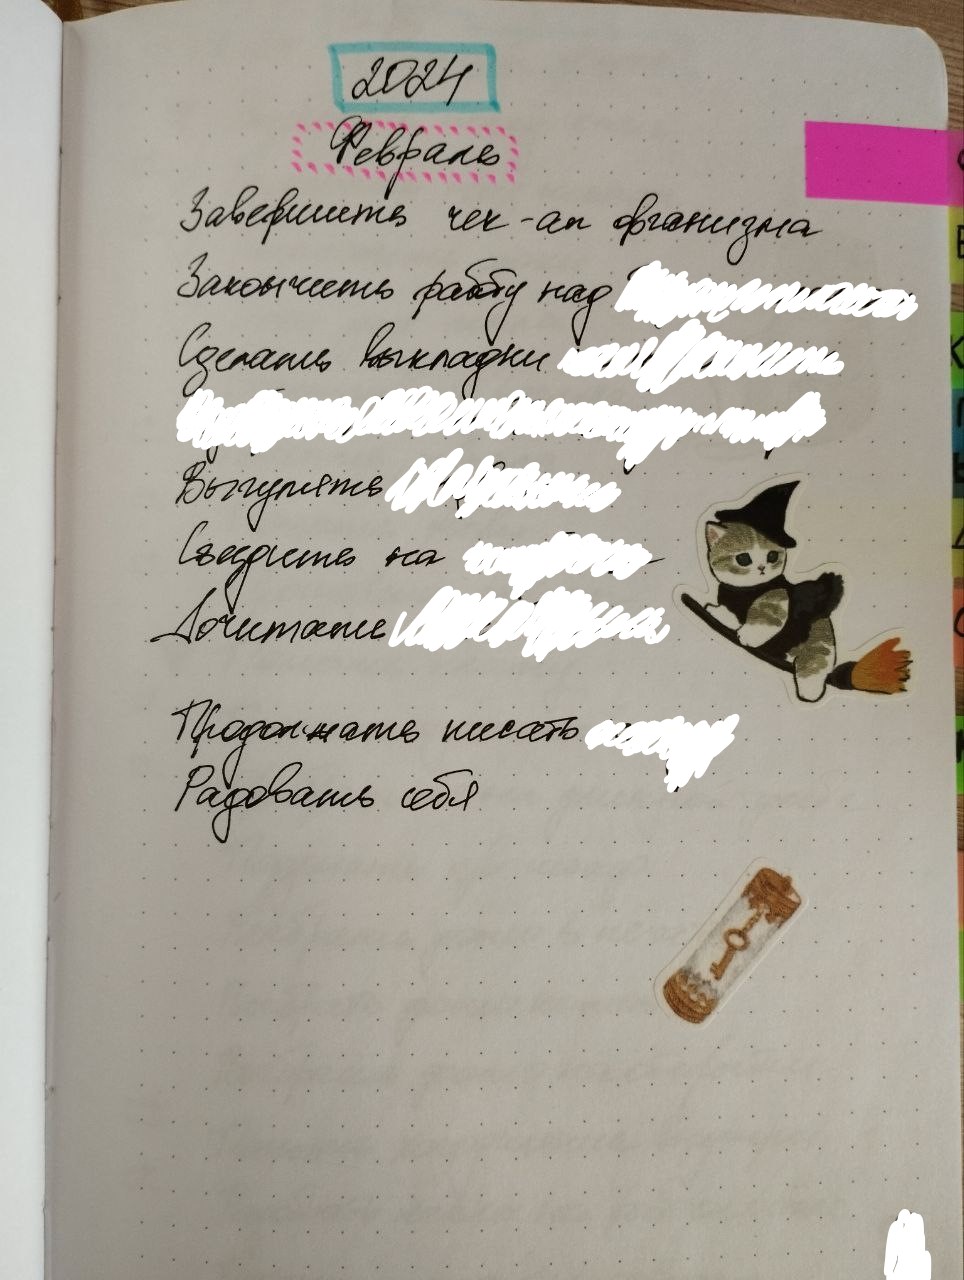 2024
Февраль
Завершить чек-ап организма
Закончить работу над
Сделать выкладки
Выгулять
Съездить на
Дочитать
Продолжать писать
Радовать себя